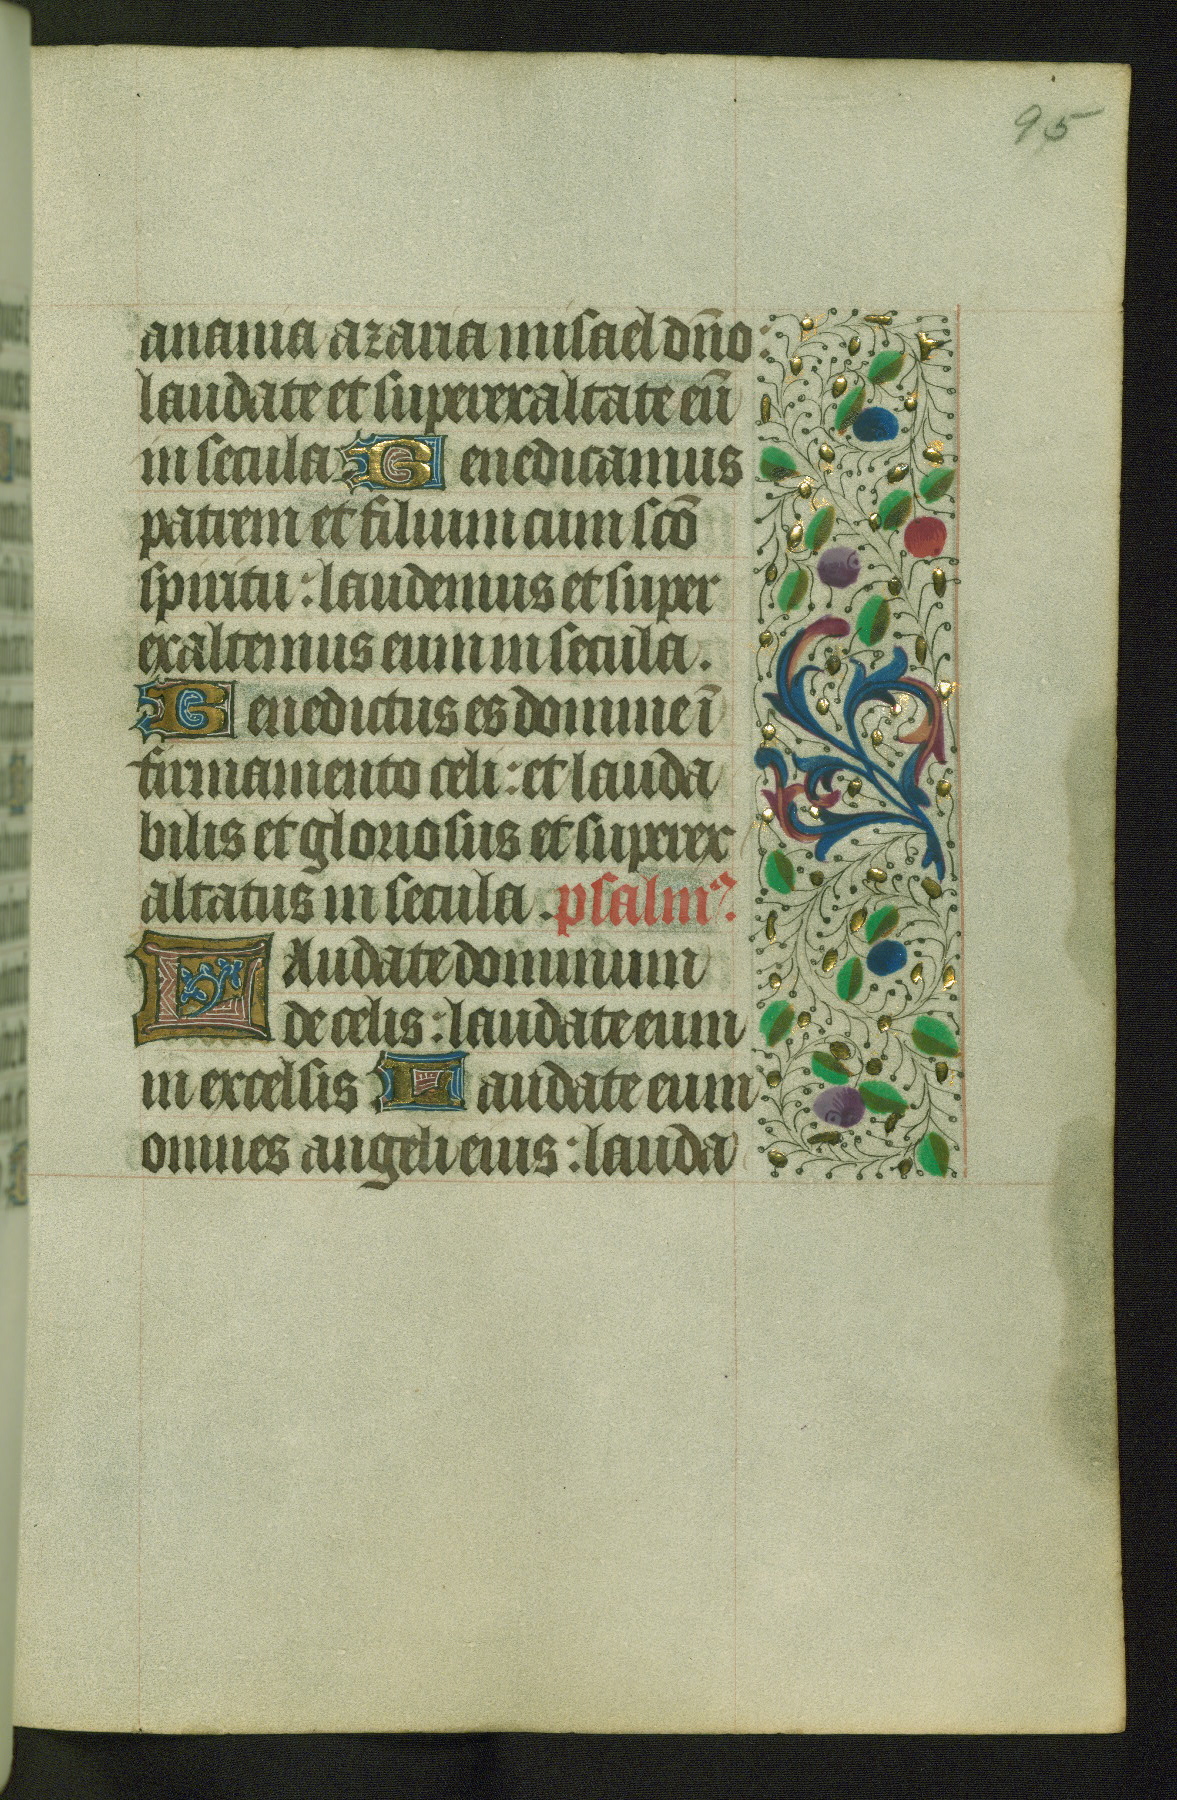 95
anania azaria misael dño:
laudate et superexaltate eū
in secula. Benedicamus
patrem et filium cum scō
spiritu: laudemus et super
exaltemus eum in secula.
Benedictus es domine ī
firmamento celi: et lauda
bilis et gloriosus et superex
altatus in secula. psalmꝰ.
Laudate dominum
de celis: laudate eum
in excelsis Laudate eum
omnes angeli eius: lauda